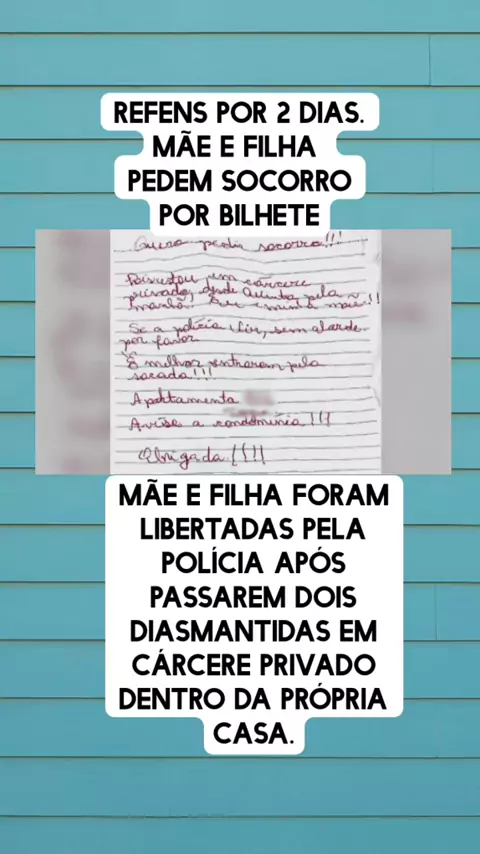 REFENS POR 2 DIAS.
MÃE E FILHA
PEDEM SOCORRO
POR BILHETE
Quero pedir socorro!!!
estou em cárcere
privado, desde Quinta pela
manhã. Eu e minha mãe!!
Se a polícia vir, sem alarde
por favor
É melhor entrarem pela
sacada!!!
Apartamento
Avise a condomínio!!!
Obrigada!!!!
MÃE E FILHA FORAM
LIBERTADAS PELA
POLÍCIA APÓS
PASSAREM DOIS
DIASMANTIDAS EM
CÁRCERE PRIVADO
DENTRO DA PRÓPRIA
CASA.